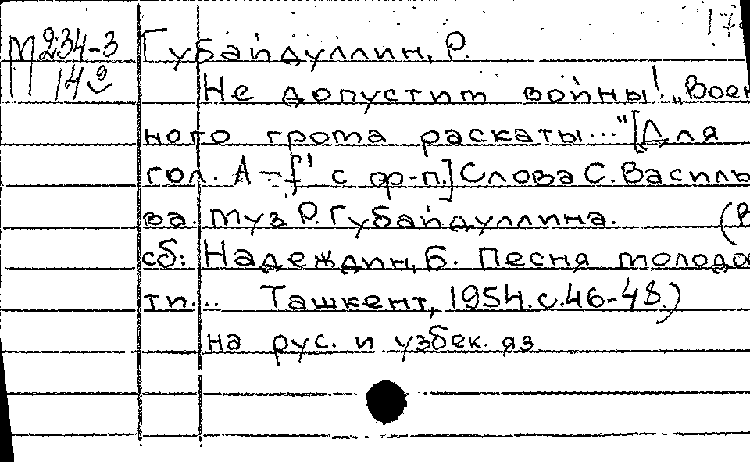 17
М234-3 Губайдуллин, Р.
14 Не допустим войны! „Воен
ного грома раскаты..." [Для
гол. A–f' с ф-п.] Слова С. Василь
ва. Муз. Р. Губайдуллина. (В
сб: Надеждин, Б. Песня молодо
ти... Ташкент, 1954. с. 46-48.)
на рус. и узбек. яз.